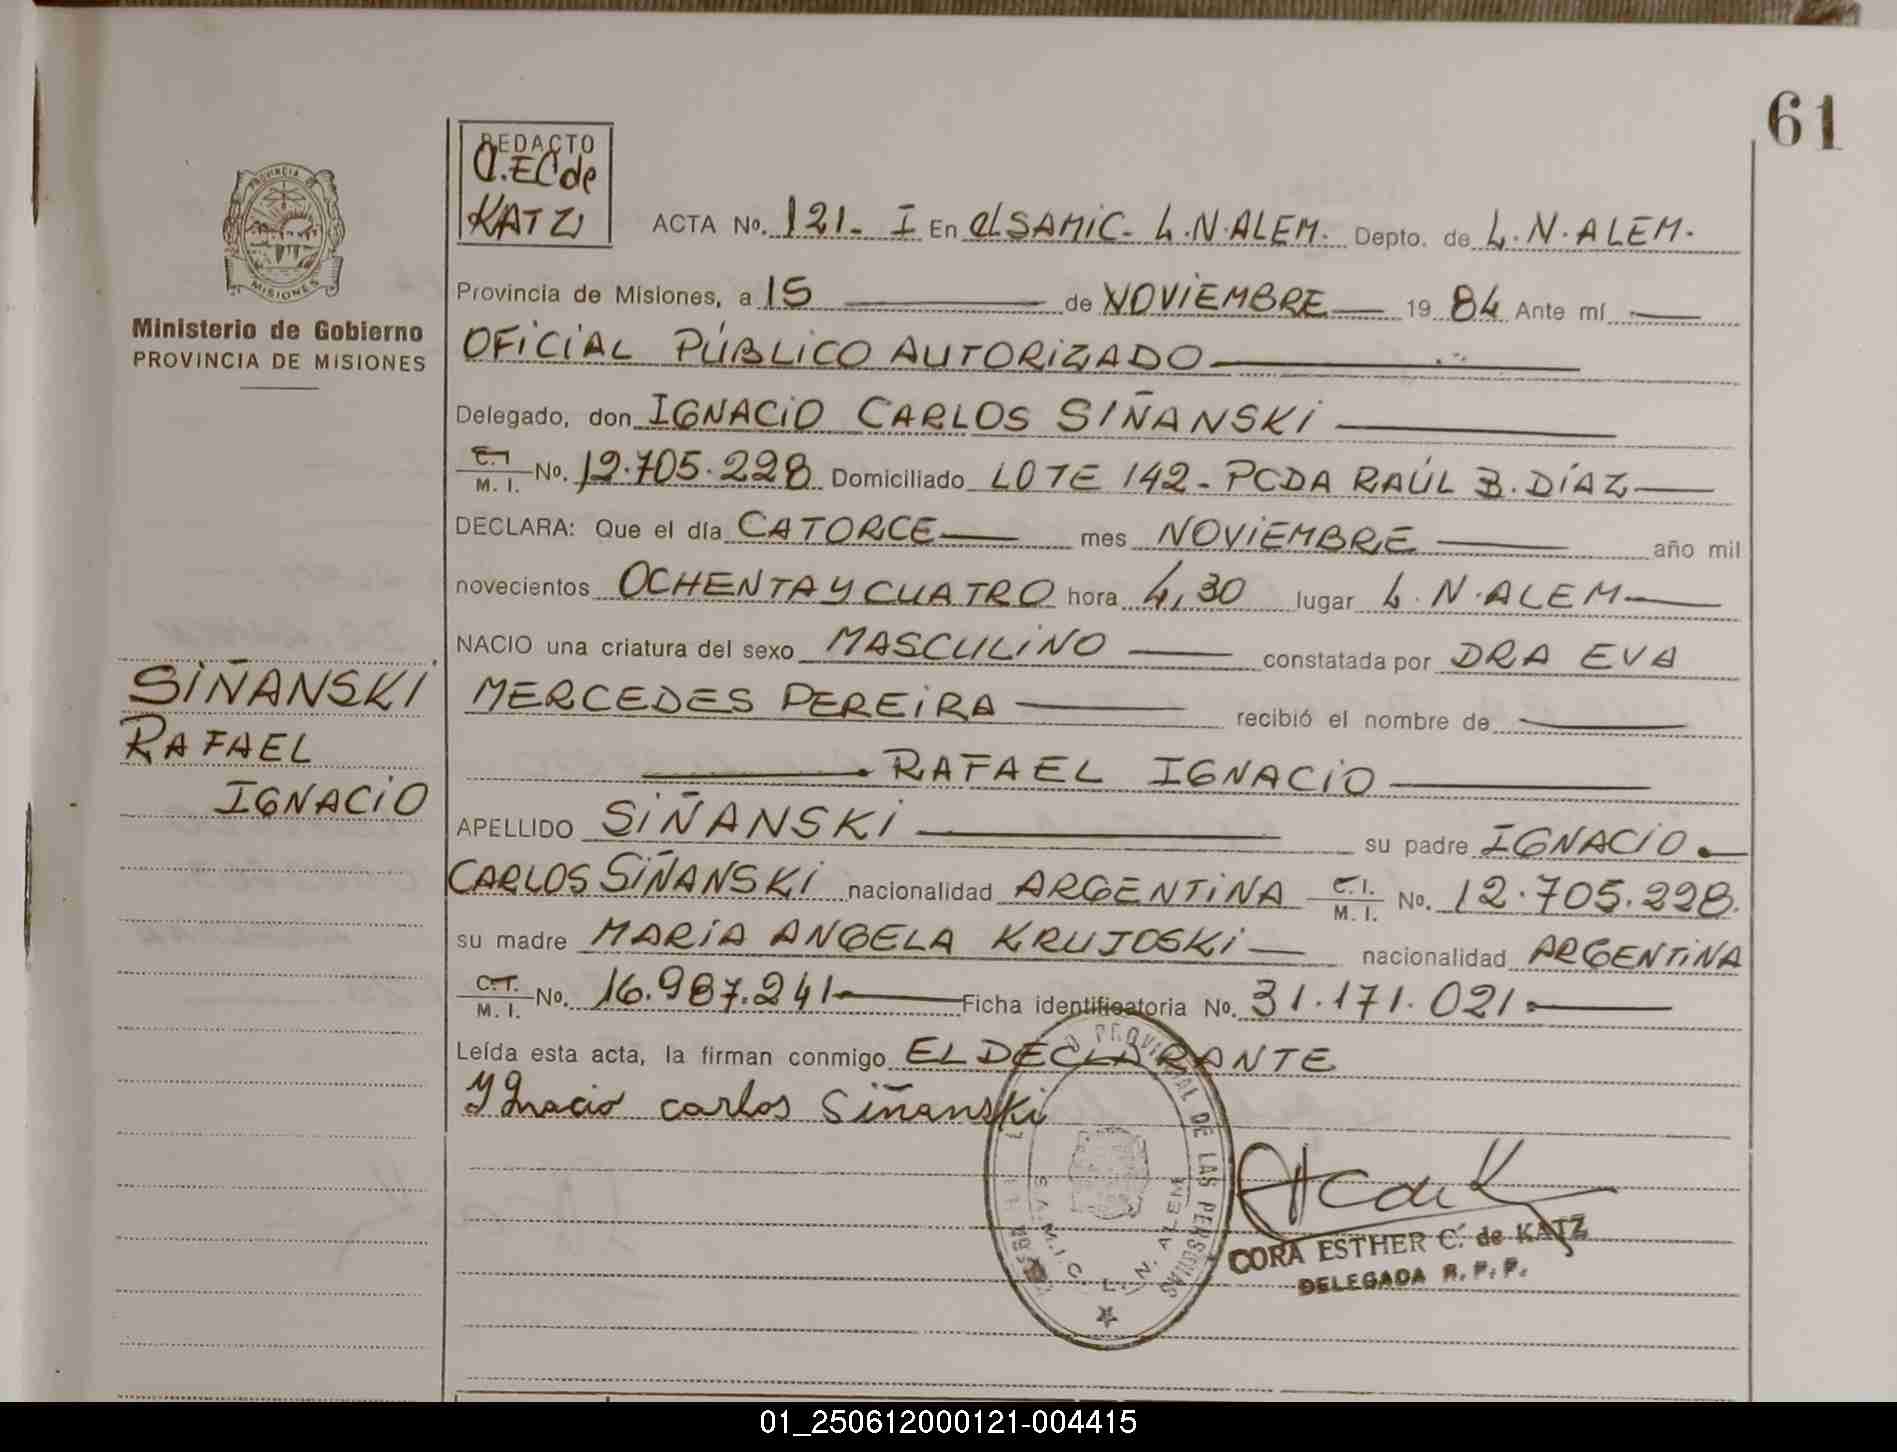 61
REDACTO
C. EC de
KATZ
ACTA No. 121- I En el SAMIC- L.N.ALEM. Depto. de L.N.ALEM.
PROVINCIA DE
MISIONES
Provincia de Misiones, a 15 de NOVIEMBRE 1984 Ante mí
Ministerio de Gobierno
PROVINCIA DE MISIONES
OFICIAL PÚBLICO AUTORIZADO
Delegado, don IGNACIO CARLOS SIÑANSKI
C.I. M. I. No. 12.705.228 Domiciliado LOTE 142- PCDA RAÚL B. DÍAZ
DECLARA: Que el día CATORCE mes NOVIEMBRE año mil
novecientos OCHENTA Y CUATRO hora 4,30 lugar L.N.ALEM
NACIO una criatura del sexo MASCULINO constatada por DRA EVA
SIÑANSKI
RAFAEL
IGNACIO
MERCEDES PEREIRA recibió el nombre de
RAFAEL IGNACIO
APELLIDO SIÑANSKI su padre IGNACIO
CARLOS SIÑANSKI nacionalidad ARGENTINA C.I. M. I. No. 12.705.228.
su madre MARIA ANGELA KRUJOSKI nacionalidad ARGENTINA
C.I. M. I. No. 16.987.241 Ficha identificatoria No. 31.171.021
Leída esta acta, la firman conmigo EL DECLARANTE
Ygnacio carlos Siñanski
PROVINCIAL DE LAS PERSONAS
L. N. ALEM
CORA ESTHER C. de KATZ
DELEGADA R. P. P.
01_250612000121-004415